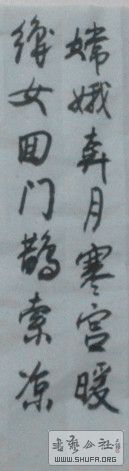 嫦娥奔月寒宫暖
织女回门鹊索凉
书法公社
WWW.SHUFA.ORG